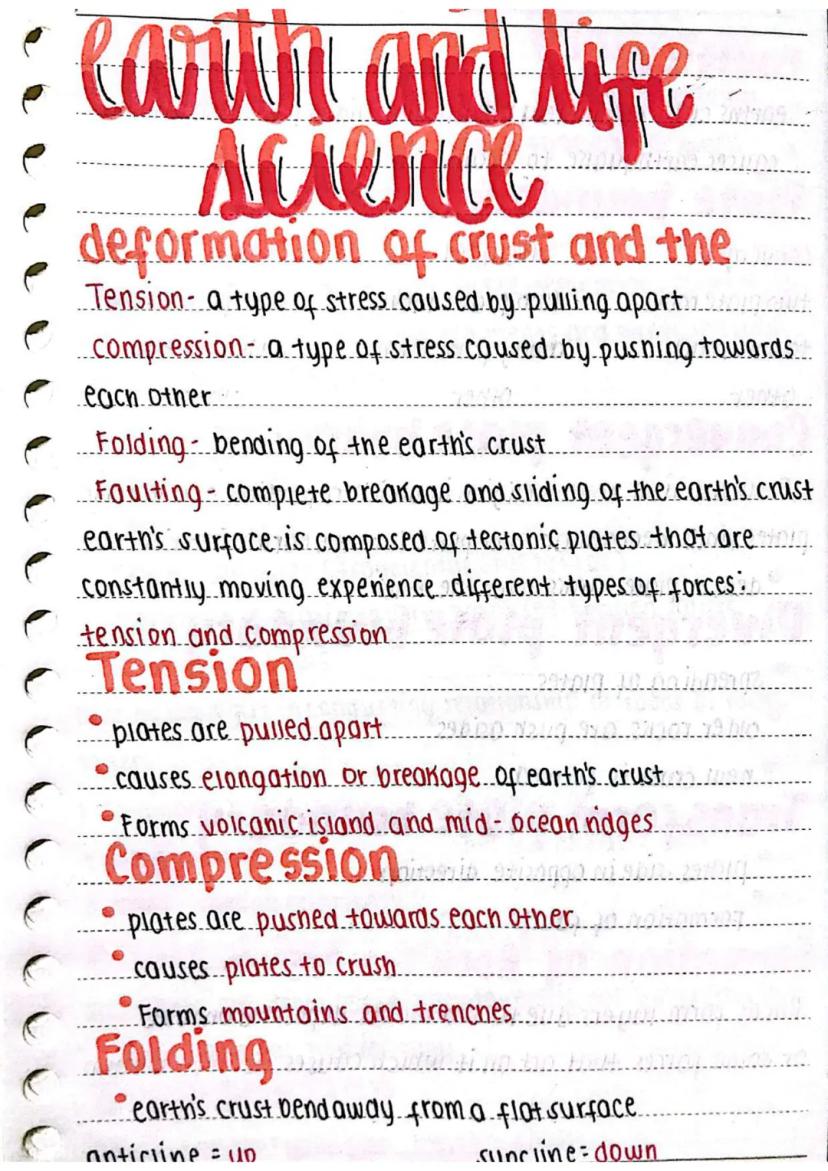 earth and life
science
deformation of crust and the
Tension- a type of stress caused by pulling apart
compression- a type of stress caused by pushing towards
each other
Folding- bending of the earth's crust
Faulting- complete breakage and sliding of the earth's crust
earth's surface is composed of tectonic plates that are
constantly moving experience different types of forces:
tension and compression
Tension
• plates are pulled apart
• causes elongation or breakage of earth's crust
• Forms volcanic island and mid- ocean ridges
Compression
• plates are pushed towards each other
• causes plates to crush
• Forms mountains and trenches
Folding
• earth's crust bend away from a flat surface
anticline = up syncline = down